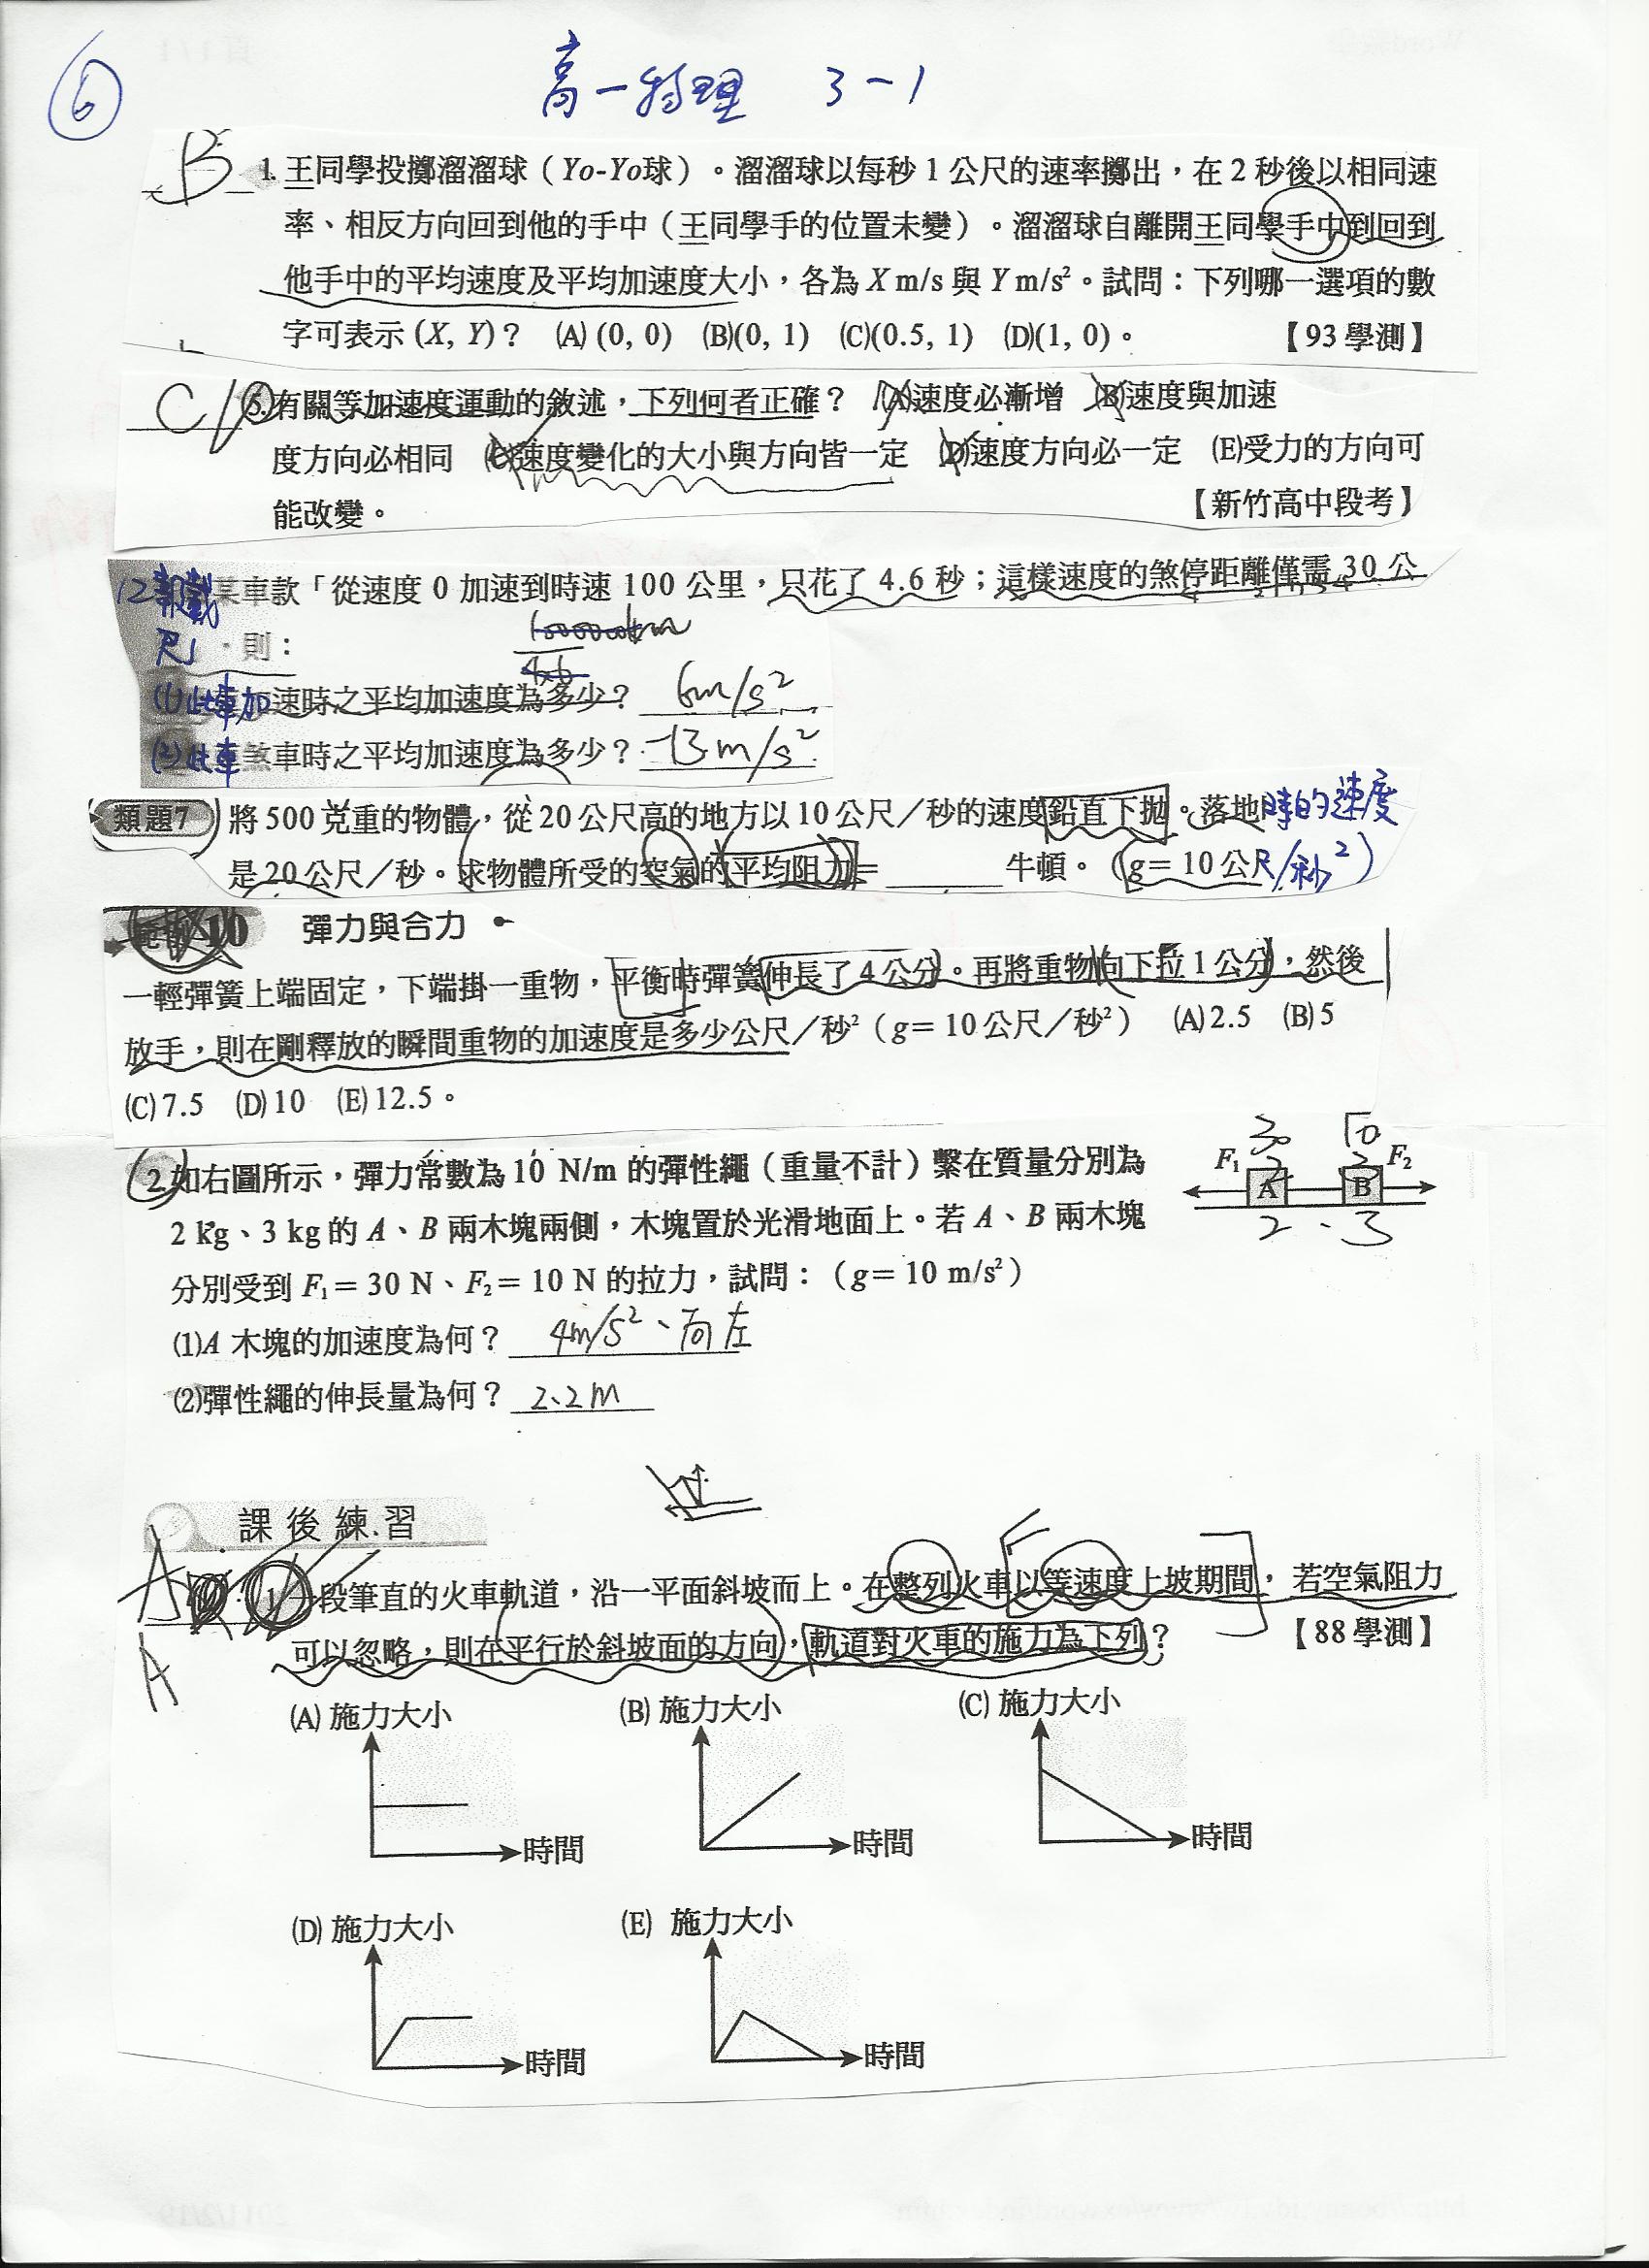 ⑥ 高一物理 3-1
B 1. 王同學投擲溜溜球（Yo-Yo球）。溜溜球以每秒 1 公尺的速率擲出，在 2 秒後以相同速
率、相反方向回到他的手中（王同學手的位置未變）。溜溜球自離開王同學手中到回到
他手中的平均速度及平均加速度大小，各為 X m/s 與 Y m/s²。試問：下列哪一選項的數
字可表示 (X, Y)？ (A) (0, 0) (B)(0, 1) (C)(0.5, 1) (D)(1, 0)。 【93 學測】
C 5. 有關等加速度運動的敘述，下列何者正確？ (A)速度必漸增 (B)速度與加速
度方向必相同 (C)速度變化的大小與方向皆一定 (D)速度方向必一定 (E)受力的方向可
能改變。 【新竹高中段考】
12 報載某車款「從速度 0 加速到時速 100 公里，只花了 4.6 秒；這樣速度的煞停距離僅需 30 公
尺」，則：
4.6
(1)此車加速時之平均加速度為多少？ 6m/s²
(2)此車煞車時之平均加速度為多少？ -13m/s²
類題7 將 500 克重的物體，從 20 公尺高的地方以 10 公尺／秒的速度鉛直下拋。落地時的速度
是 20 公尺／秒。求物體所受的空氣的平均阻力= 牛頓。（g= 10 公尺/秒²）
10 彈力與合力
一輕彈簧上端固定，下端掛一重物，平衡時彈簧伸長了 4 公分。再將重物向下拉 1 公分，然後
放手，則在剛釋放的瞬間重物的加速度是多少公尺／秒²（g= 10 公尺／秒²） (A) 2.5 (B) 5
(C) 7.5 (D) 10 (E) 12.5。
30 10
F₁ A B F₂
2、3
2. 如右圖所示，彈力常數為 10 N/m 的彈性繩（重量不計）繫在質量分別為
2 kg、3 kg 的 A、B 兩木塊兩側，木塊置於光滑地面上。若 A、B 兩木塊
分別受到 F₁ = 30 N、F₂ = 10 N 的拉力，試問：（g= 10 m/s²）
(1)A 木塊的加速度為何？ 4m/s²、向左
(2)彈性繩的伸長量為何？ 2.2m
課後練習
A 1. 一段筆直的火車軌道，沿一平面斜坡而上。在整列火車以等速度上坡期間，若空氣阻力
A 可以忽略，則在平行於斜坡面的方向，軌道對火車的施力為下列？ 【88 學測】
(A) 施力大小 (B) 施力大小 (C) 施力大小
時間 時間 時間
(D) 施力大小 (E) 施力大小
時間 時間